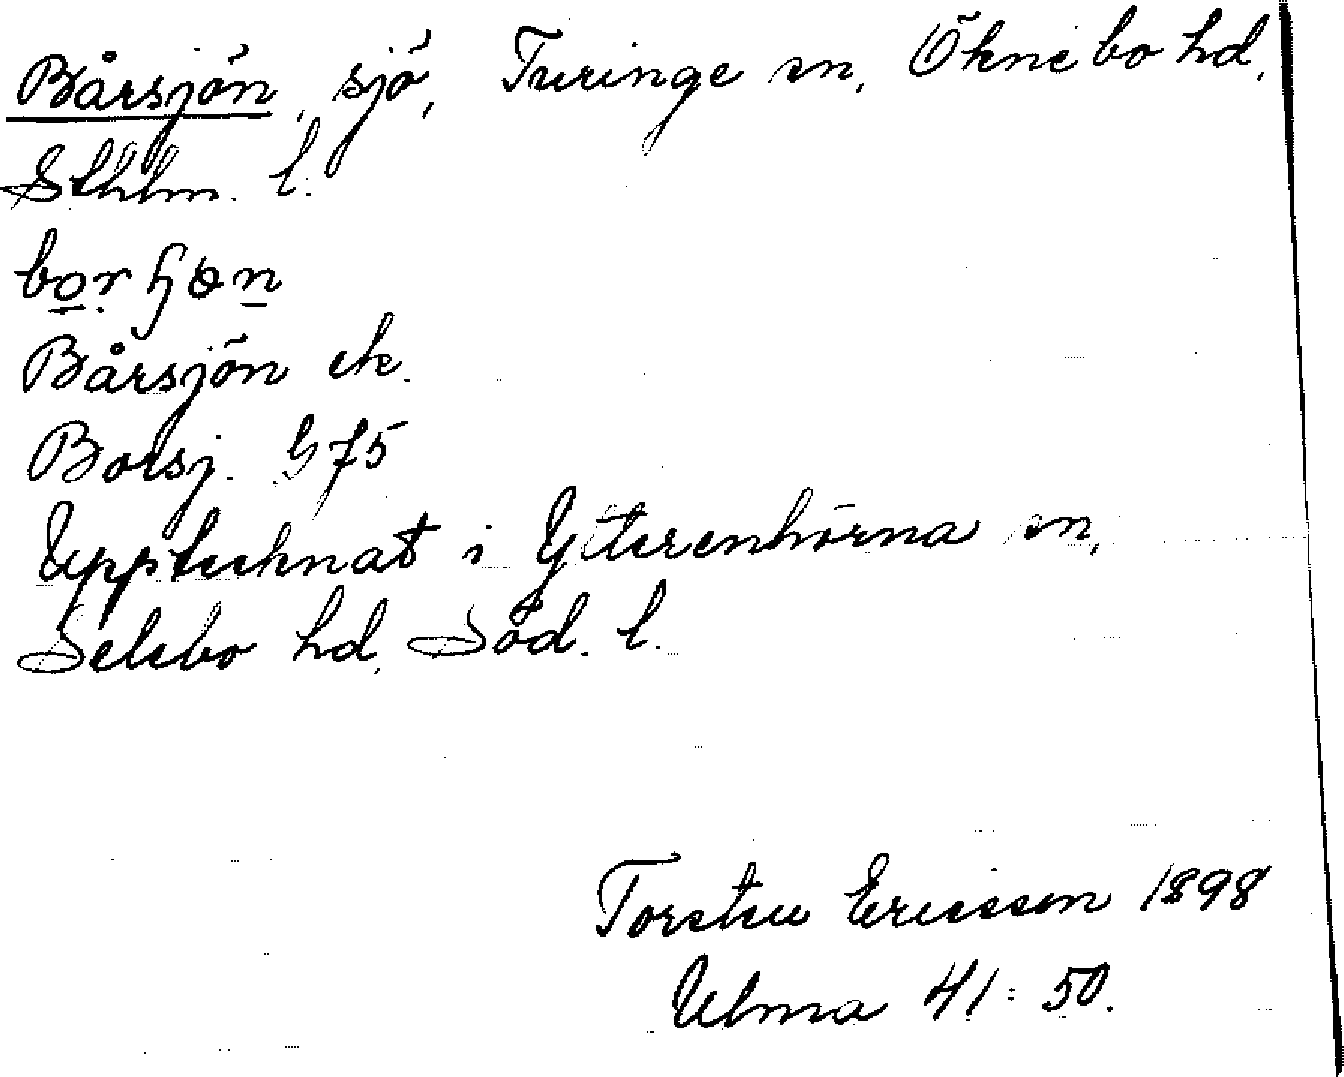 Bårsjön, sjö, Turinge sn, Öknebo hd,
Sthlm. l.
Bårsjön ek.
Borsj. G 75
Upptecknat i Ytterenhörna sn,
Selebo hd, Söd. l.
Torsten Ericsson 1898
Ulma 41:50.